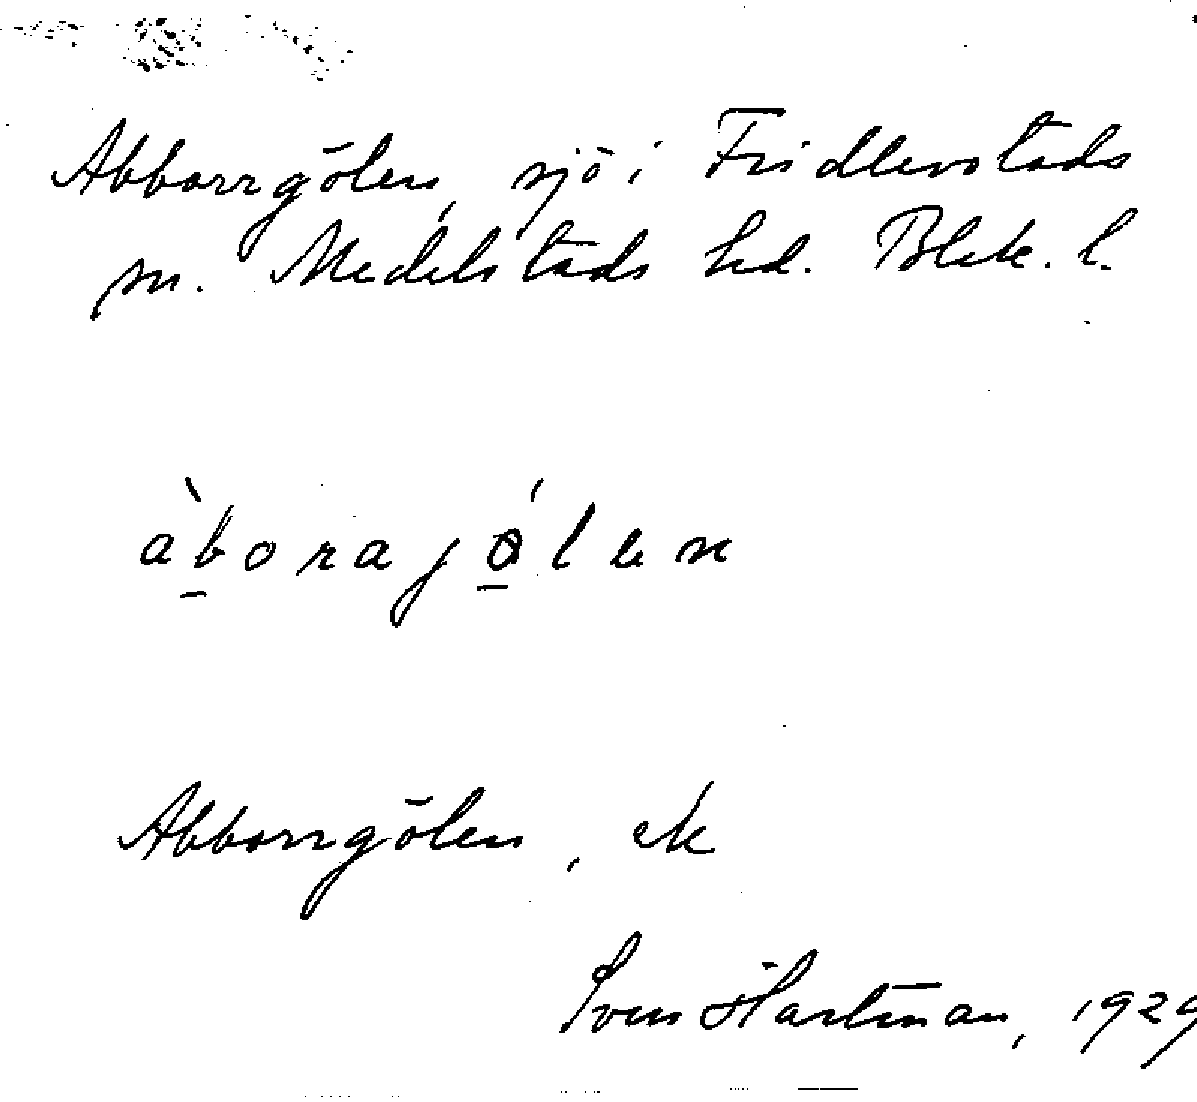 Abborrgölen, sjö i Fridlevstads
sn. Medelstads hd. Blek. l.
àboragö́len
Abborrgölen, ek
Sven Hartman, 1929